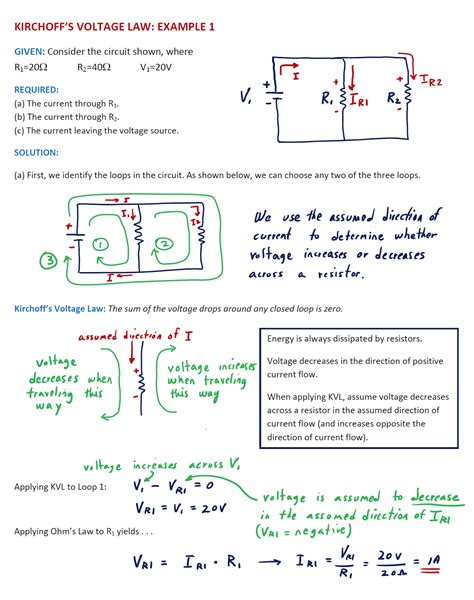 KIRCHOFF'S VOLTAGE LAW: EXAMPLE 1
GIVEN: Consider the circuit shown, where
R₁=20Ω R₂=40Ω V₁=20V
REQUIRED:
(a) The current through R₁.
(b) The current through R₂.
(c) The current leaving the voltage source.
I
+
-
V₁
R₁
+
-
I_R1
R₂
+
-
I_R2
SOLUTION:
(a) First, we identify the loops in the circuit. As shown below, we can choose any two of the three loops.
I
+
-
I₁
1
2
3
I
We use the assumed direction of
current to determine whether
voltage increases or decreases
across a resistor.
Kirchoff's Voltage Law: The sum of the voltage drops around any closed loop is zero.
assumed direction of I
voltage
decreases when
traveling this
way
+
-
voltage increases
when traveling
this way
Energy is always dissipated by resistors.
Voltage decreases in the direction of positive
current flow.
When applying KVL, assume voltage decreases
across a resistor in the assumed direction of
current flow (and increases opposite the
direction of current flow).
voltage increases across V₁
Applying KVL to Loop 1: V₁ - V_R1 = 0
V_R1 = V₁ = 20V
voltage is assumed to decrease
in the assumed direction of I_R1
(V_R1 = negative)
Applying Ohm's Law to R₁ yields . . .
V_R1 = I_R1 · R₁ → I_R1 = V_R1/R₁ = 20V/20Ω = 1A